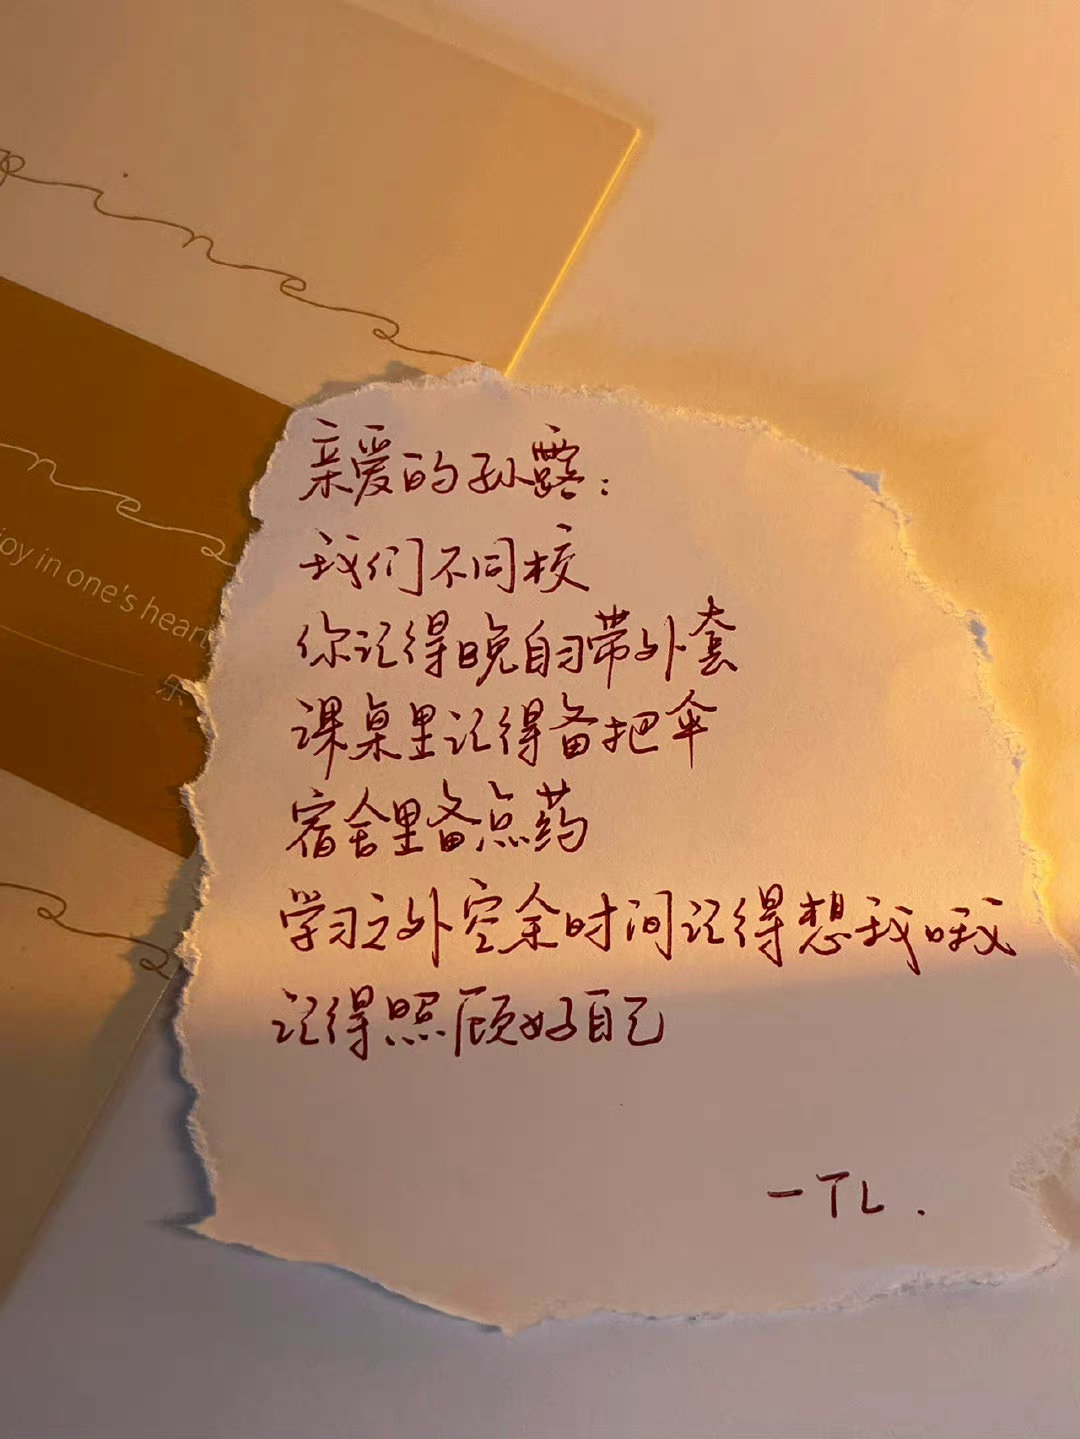 亲爱的孙露：
我们不同校
你记得晚自习带外套
课桌里记得备把伞
宿舍里备点药
学习之外空余时间记得想我哦
记得照顾好自己
—TL.
joy in one's heart
乐